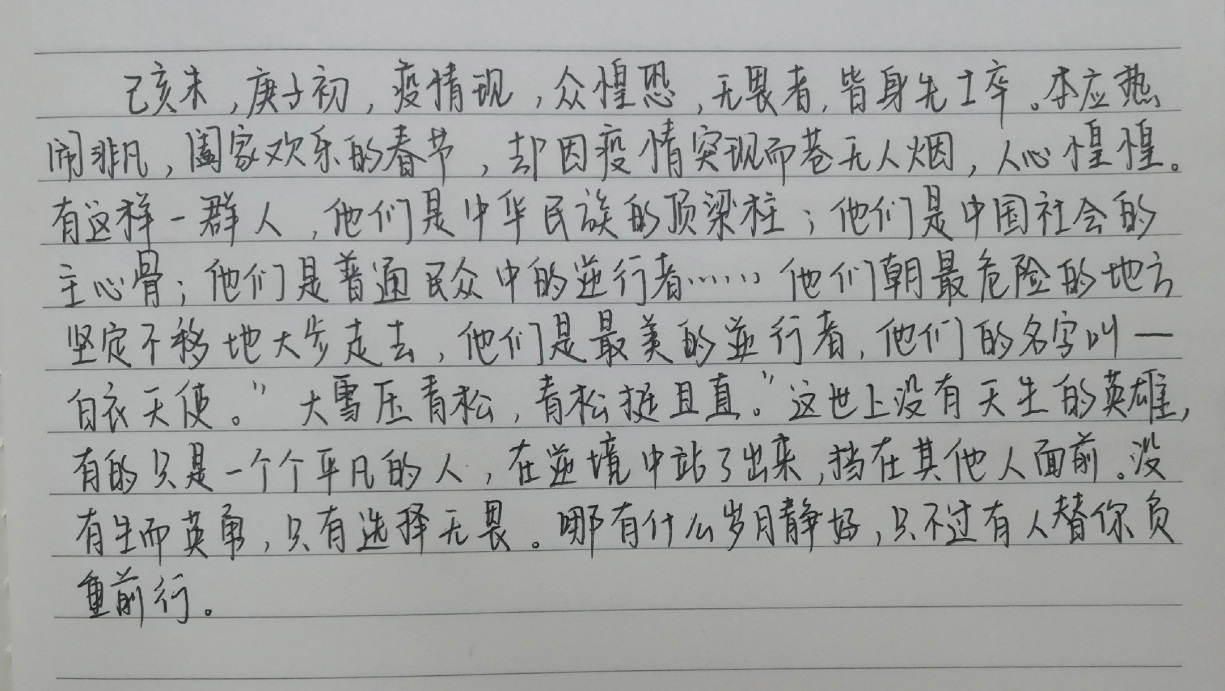 己亥末，庚子初，疫情现，众惶恐，无畏者，皆身先士卒。本应热
闹非凡，阖家欢乐的春节，却因疫情突现而巷无人烟，人心惶惶。
有这样一群人，他们是中华民族的顶梁柱；他们是中国社会的
主心骨；他们是普通民众中的逆行者……他们朝最危险的地方
坚定不移地大步走去，他们是最美的逆行者，他们的名字叫—
白衣天使。"大雪压青松，青松挺且直。"这世上没有天生的英雄，
有的只是一个个平凡的人，在逆境中站了出来，挡在其他人面前。没
有生而英勇，只有选择无畏。哪有什么岁月静好，只不过有人替你负
重前行。